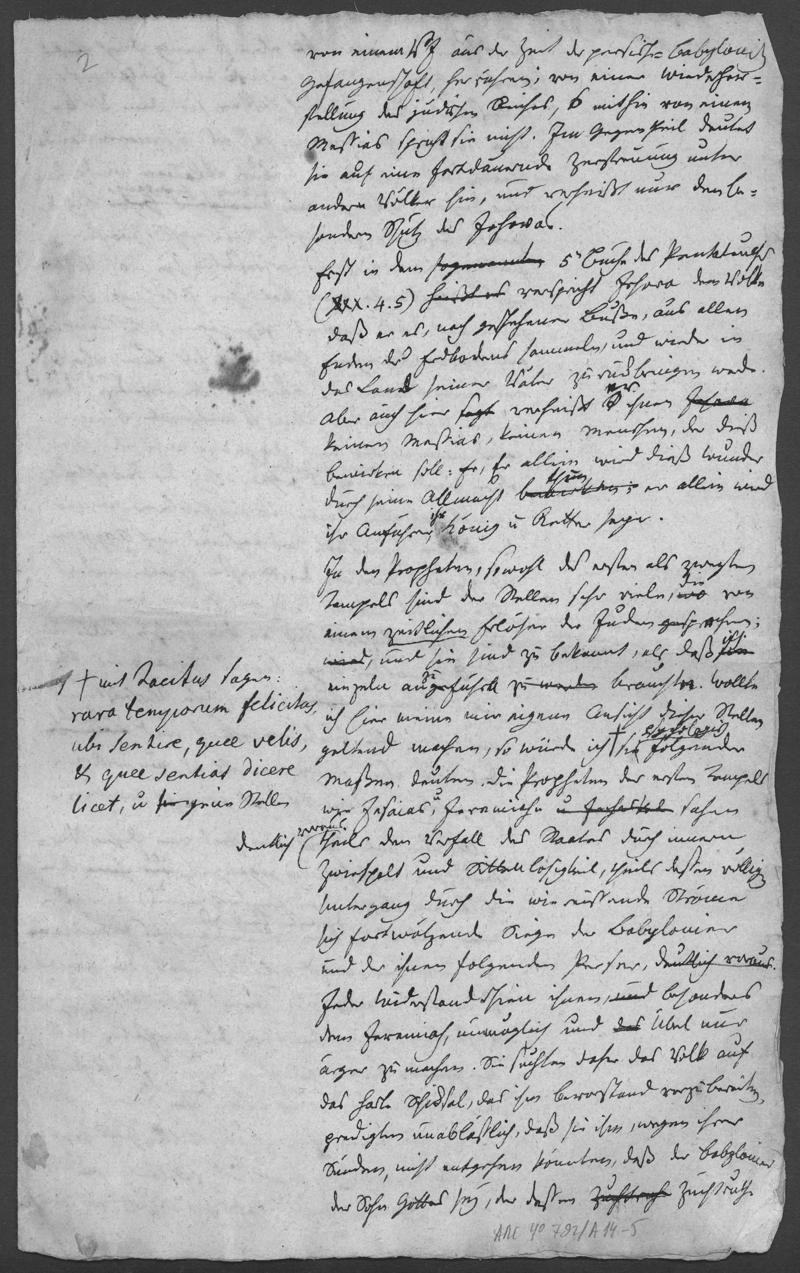 2
von einem Vf aus der Zeit der persisch=babylonisch
Gefangenschaft, herrühren; von einer Wiederher=
stellung des jüdischen Reiches, mithin von einem
Messias spricht sie nicht. Im Gegentheil deutet
sie auf eine fortdauernde Zerstreuung unter
andern Völker hin, und verheißt nur den be=
sondern Schutz des Jehova.
Erst in dem sogenannten 5ⁿ Buche des Pentateuchs
(XXX. 4. 5) heißt es verspricht Jehova dem Volke
daß er es, nach geschehener Buße, aus allen
Enden des Erdbodens sammeln, und wieder in
das Land seiner Väter zurückbringen werde.
Aber auch hier sagt verheißt er ihnen Jehova
keinen Messias, keinen Menschen, der dieß
bewirken soll: Er, Er allein wird dieß Wunder
durch seine Allmacht bewirken; thun er allein wird
ihr Anführer, ihr König u Retter seyn.
In den Propheten, sowohl des ersten als zweyten
Tempels sind der Stellen sehr viele, wo die von
einem zeitlichen Erlöser der Juden gesprochen;
wird, und sie sind zu bekannt, als daß ich sie
einzeln anzuführen zu werden brauchte. Wollte
ich hier meine mir eigene Ansicht dieser Stellen
geltend machen, so würde ich † sie folgender
Maßen deuten. Die Propheten des ersten Tempels
wie Jesaias, u Jeremiahu u Jecheskel sahen
theils den Verfall des Staates durch innern
Zwiespalt und Sittenlosigkeit, theils dessen völligen
Untergang durch die wie reissende Ströme
sich fortwälzende Siege der Babylonier
und der ihnen folgenden Perser, deutlich voraus.
Jeder Widerstand schien ihnen, und besonders
dem Jeremiah, unmöglich und das Übel nur
ärger zu machen. Sie suchten daher das Volk auf
das harte Schicksal, das ihm bevorstand vorzubereiten,
predigten unabläßlich, daß sie ihm, wegen ihrer
Sünden, nicht entgehen könnten, daß der Babylonier
der Sohn Gottes sey, der dessen Zuchtruthe
† mit Tacitus sagen:
rara temporum felicitas,
ubi sentire, quae velis,
& quae sentias dicere
licet, u jene Stellen
deutlich voraus.
ARC 4º 792/A14-5